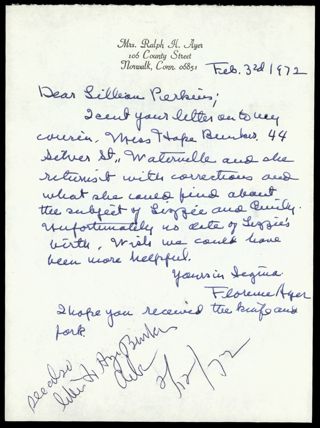 Mrs. Ralph H. Ayer
106 County Street
Norwalk, Conn. 06851
Feb. 3rd 1972
Dear Lillian Perkins;
I sent your letter on to my
cousin, Miss Hope Bunker, 44
Silver St., Waterville and she
returns it with corrections and
what she could find about
the subject of Lizzie and Emily.
Unfortunately no date of Lizzie's
birth. Wish we could have
been more helpful.
Yours in
Florence Ayer
I hope you received the knife and
fork.
see also
letter H Bunker
2/12/72